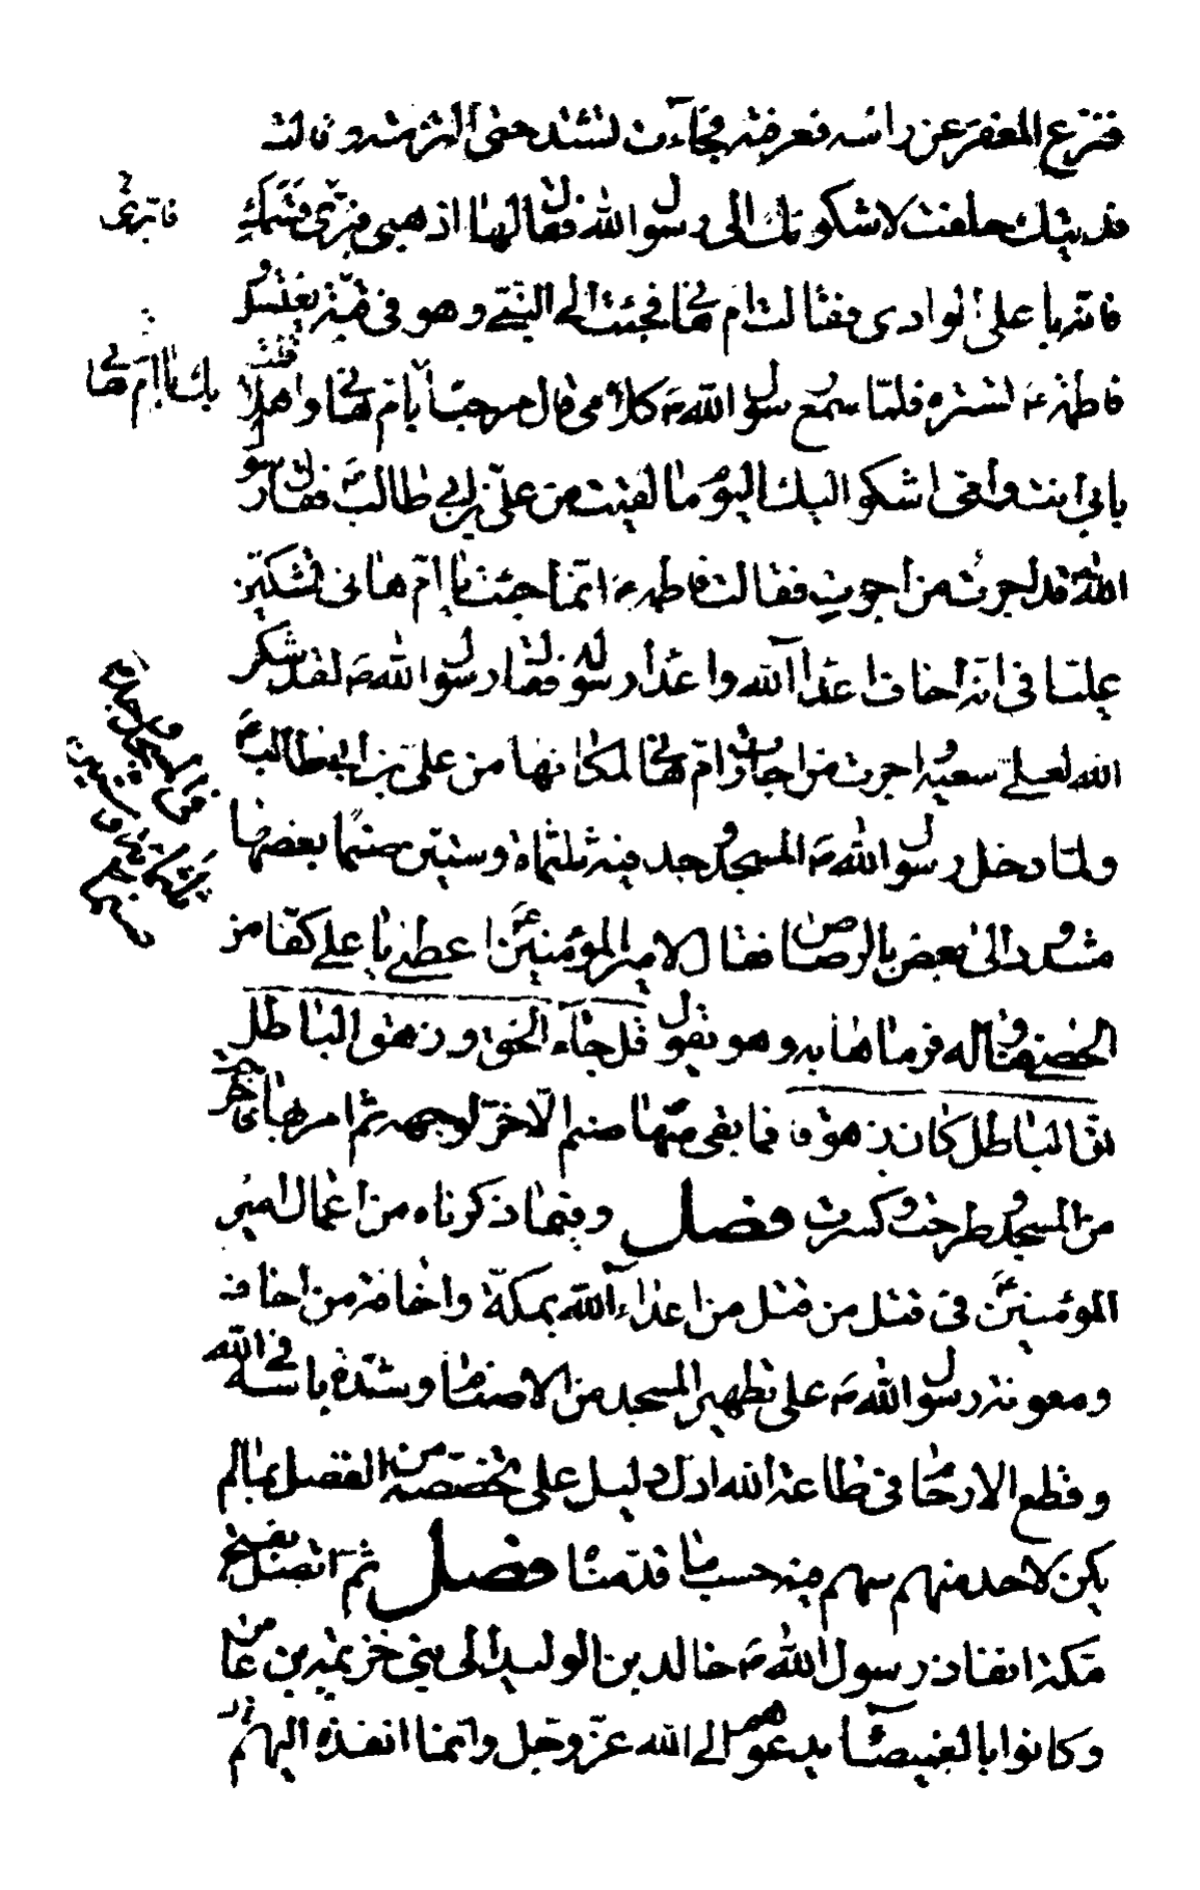 فنزع المغفر عن رأسه فعرفته فجاءت تشتد حتى التزمته وقالت
فديتك حلفت لاشكونك الى رسول الله فقال لها اذهبي فبرّي قسمك
فابرّي
فانه باعلى الوادي فقالت ام هاني فجئت الى النبي وهو في قبة يغتسل و
فاطمة ع تستره فلما سمع رسول الله ص كلامي قال مرحبا بام هاني واهلا قلت
بك يا ام هاني
بابي انت وامي اشكو اليك اليوم ما لقيت من علي بن ابي طالب ع فقال رسول
الله ص قد اجرت من اجرت فقالت فاطمة ع انما جئت يا ام هاني تشكين
عليا في انه اخاف اعداء الله واعداء رسوله فقال رسول الله ص لقد شكر
الله لعلي سعيه واجرت من اجارت ام هاني لمكانها من علي بن ابي طالب ع
ولما دخل رسول الله ص المسجد وجد فيه ثلثماة وستين صنما بعضها
مشدود الى بعض بالرصاص فقال لامير المؤمنين ع اعطني يا علي كفا من
الحصى فناوله فرماها به وهو يقول قل جاء الحق وزهق الباطل
ان الباطل كان زهوقا فما بقي منها صنم الا خر لوجهه ثم امر بها فاخرجت
من المسجد وطرحت وكسرت فصل وفيما ذكرناه من اعمال امير
المؤمنين ع في قتل من قتل من اعداء الله بمكة واخافة من اخافه
ومعونة رسول الله ص على تطهير المسجد من الاصنام وشدة باسه في الله
وقطع الارحام في طاعة الله ادل دليل على تخصصه من الفضل بما لم
يكن لاحد منهم سهم فيه حسب ما قدمناه فصل ثم اتصل بفتح
مكة انفاذ رسول الله ص خالد بن الوليد الى بني خزيمة بن عامر
وكانوا بالغميصاء يدعوهم الى الله عز وجل وانما انفذه اليهم